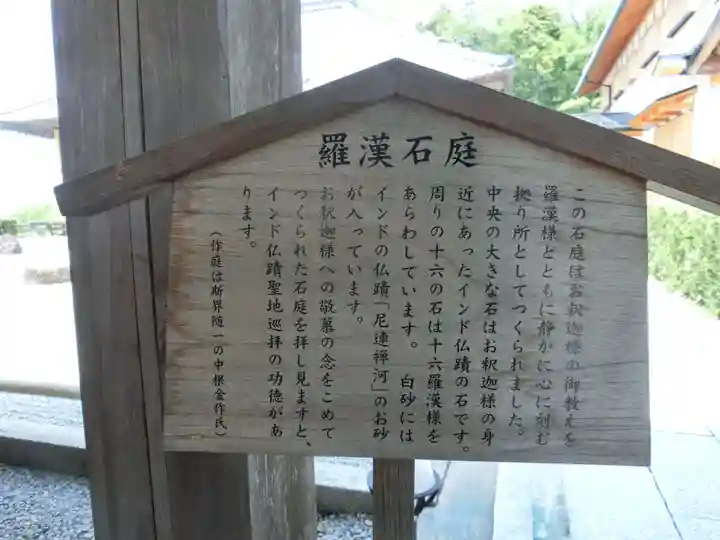 羅漢石庭
この石庭はお釈迦様の御教えを
羅漢様とともに静かに心に刻む
拠り所としてつくられました。
中央の大きな石はお釈迦様の身
近にあったインド仏蹟の石です。
周りの十六の石は十六羅漢様を
あらわしています。　白砂には
インドの仏蹟「尼連禅河」のお砂
が入っています。
お釈迦様への敬慕の念をこめて
つくられた石庭を拝し見ますと、
インド仏蹟聖地巡拝の功徳があ
ります。
（作庭は斯界随一の中根金作氏）